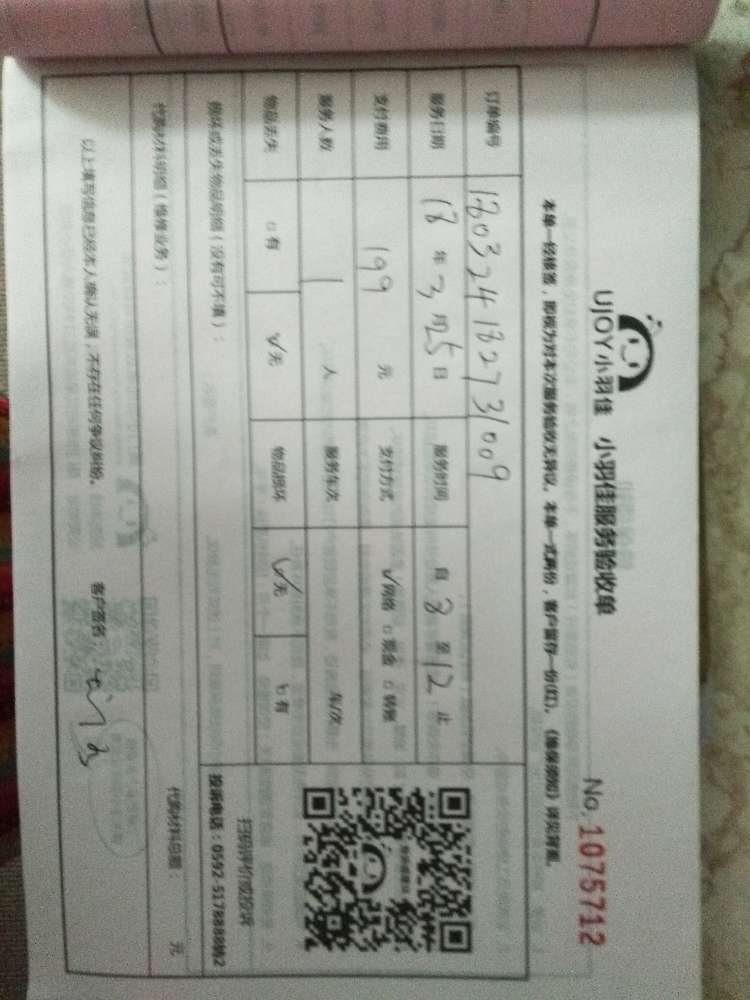 UJOY小羽佳 小羽佳服务验收单 No. 1075712
本单一经接签，即视为对本次服务验收无异议。本单一式两份，客户留存一份(红)。
订单编号 180324182731009
服务日期 18年3月25日 服务时间 自8至12止
支付费用 199元 支付方式 √网络 □现金 □转账
服务人数 1人 服务车次 车/次
物品丢失 □有 √无 物品损坏 √无 □有
损坏或丢失物品明细（没有可不填）：
扫码评价或投诉
投诉电话：0592-5178888转2
代购材料明细（维修业务）：
代购材料总额： 元
以上填写信息已经本人确认无误，不存在任何争议纠纷。 客户签名：